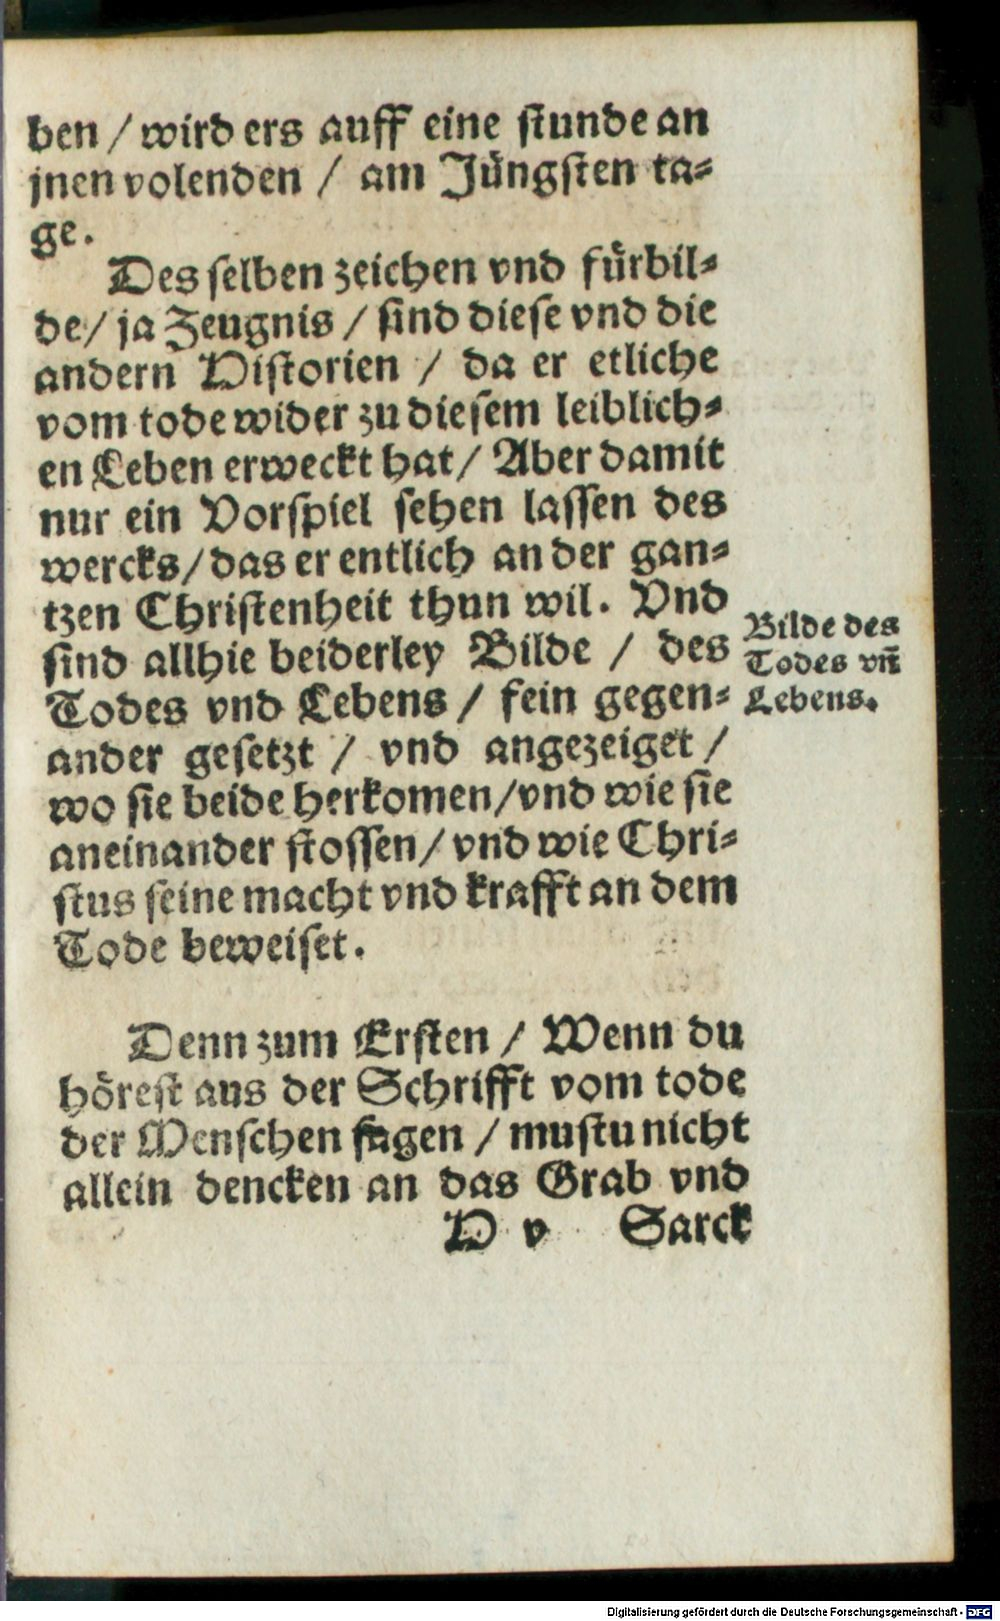 ben / wird ers auff eine stunde an
jnen volenden / am Jüngsten ta⸗
ge.
Des selben zeichen vnd fürbil⸗
de / ja Zeugnis / sind diese vnd die
andern Historien / da er etliche
vom tode wider zu diesem leiblich⸗
en Leben erweckt hat / Aber damit
nur ein Vorspiel sehen lassen des
wercks / das er entlich an der gan⸗
tzen Christenheit thun wil. Vnd
sind allhie beiderley Bilde / des
Todes vnd Lebens / fein gegen⸗
ander gesetzt / vnd angezeiget /
wo sie beide herkomen / vnd wie sie
aneinander stossen / vnd wie Chri⸗
stus seine macht vnd krafft an dem
Tode beweiset.
Bilde des
Todes vn̄
Lebens.
Denn zum Ersten / Wenn du
hörest aus der Schrifft vom tode
der Menschen sagen / mustu nicht
allein dencken an das Grab vnd
D v Sarck
Digitalisierung gefördert durch die Deutsche Forschungsgemeinschaft - DFG